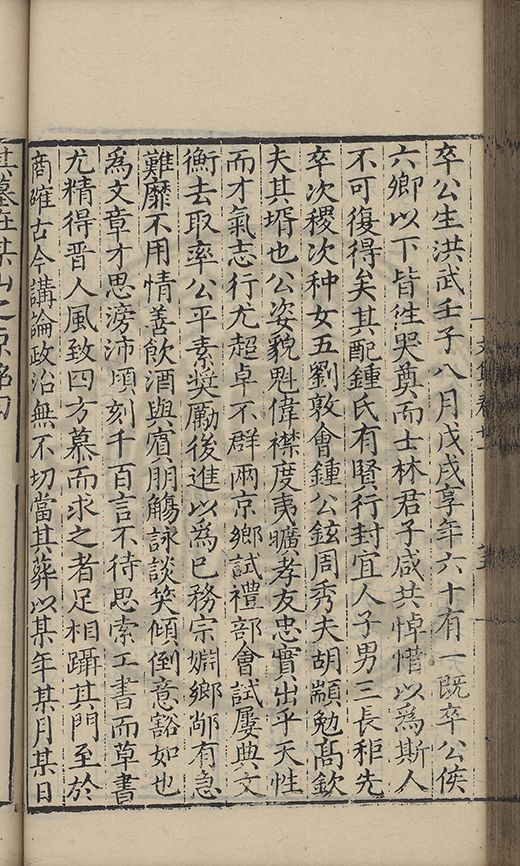 卒公生洪武壬子八月戊戌享年六十有一既卒公侯
六卿以下皆往哭奠而士林君子咸共悼惜以為斯人
不可復得矣其配鍾氏有賢行封宜人子男三長秬先
卒次稷次种女五劉敦會鍾公鉉周秀夫胡顓勉高欽
夫其壻也公姿貌魁偉襟度夷曠孝友忠實出乎天性
而才氣志行尤超卓不群兩京鄉試禮部會試屢典文
衡去取率公平素奨勵後進以為己務宗婣鄉鄰有急
難靡不用情善飲酒與賓朋觴詠談笑傾倒意豁如也
為文章才思滂沛頃刻千百言不待思索工書而草書
尤精得晋人風致四方慕而求之者足相躡其門至於
商確古今講論政治無不切當其葬以某年某月某日
其墓在某山之原銘曰